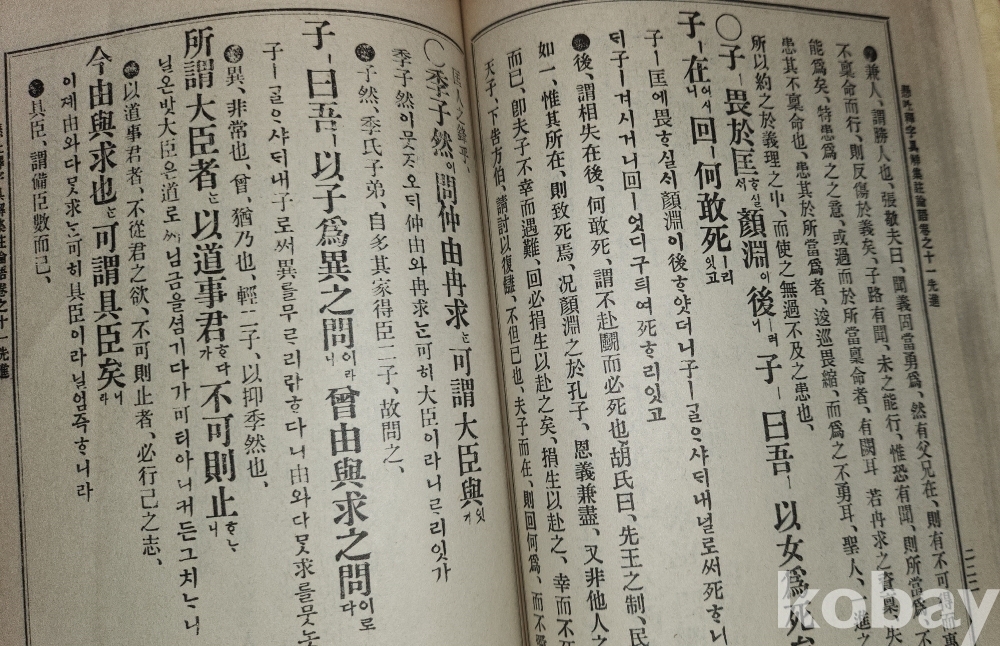 兼人、謂勝人也、張敬夫曰、聞義固當勇爲、然有父兄在、則有不可得而專
不稟命而行、則反傷於義矣、子路有聞、未之能行、惟恐有聞、則所當爲、不
能爲矣、特患爲之之意、或過而於所當稟命者、有闕耳 若冉求之資稟失
患其不稟命也、患其於所當爲者、逡巡畏縮、而爲之不勇耳、聖人、一進之
所以約之於義理之中、而使之無過不及之患也、
○子ㅣ畏於匡ᄒᆞ실ᄉᆡ 顏淵이 後ㅣ러니 子ㅣ曰吾ㅣ 以女爲死矣
子ㅣ在어시니 回ㅣ何敢死ㅣ리잇고
子ㅣ匡에畏ᄒᆞ실ᄉᆡ顏淵이後ᄒᆞ얏더니子ㅣᄀᆞᆯᄋᆞ샤ᄃᆡ내널로써死ᄒᆞ니
ᄃᆡ子ㅣ겨시거니回ㅣ엇디구ᄐᆡ여死ᄒᆞ리잇고
後、謂相失在後、何敢死、謂不赴鬪而必死也、胡氏曰、先王之制、民
如一、惟其所在、則致死焉、況顏淵之於孔子、恩義兼盡、又非他人之
而已、卽夫子不幸而遇難、回必捐生以赴之矣、捐生以赴之、幸而不死
天子、下告方伯、請討以復讎、不但已也、夫子而在、則回何爲、而不
○季子然이 問仲由冉求는 可謂大臣與잇가
季子然이묻ᄌᆞ오ᄃᆡ仲由와冉求ᄂᆞᆫ可히大臣이라니ᄅᆞ리잇가
子然、季氏子弟、自多其家得臣二子、故問之、
子ㅣ曰吾ㅣ以子爲異之問이라니 曾由與求之問이로다
子ㅣᄀᆞᆯᄋᆞ샤ᄃᆡ내子로써異를무르리라ᄒᆞ다니由와다ᄆᆞᆺ求를뭇
異、非常也、曾、猶乃也、輕二子、以抑季然也、
所謂大臣者는 以道事君ᄒᆞ다가 不可則止ᄒᆞᄂᆞ니
닐온밧大臣은道로ᄡᅥ님금을셤기다가可티아니커든그치ᄂᆞ니
以道事君者、不從君之欲、不可則止者、必行己之志、
今由與求也는 可謂具臣矣니라
이제由와다ᄆᆞᆺ求ᄂᆞᆫ可히具臣이라닐엄즉ᄒᆞ니라
具臣、謂備臣數而已、
kobay